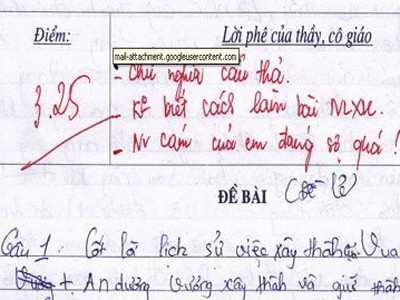 Điểm:
Lời phê của thầy, cô giáo
mail-attachment.googleusercontent.com
- Chữ nghĩa cẩu thả.
3.25
- Ko biết cách làm bài NLXH.
- Tr cảm của em đáng sợ quá!
ĐỀ BÀI
Câu 1: Cốt lõi lịch sử việc xây thành Vua
+ An dương Vương xây thành và giữ thành